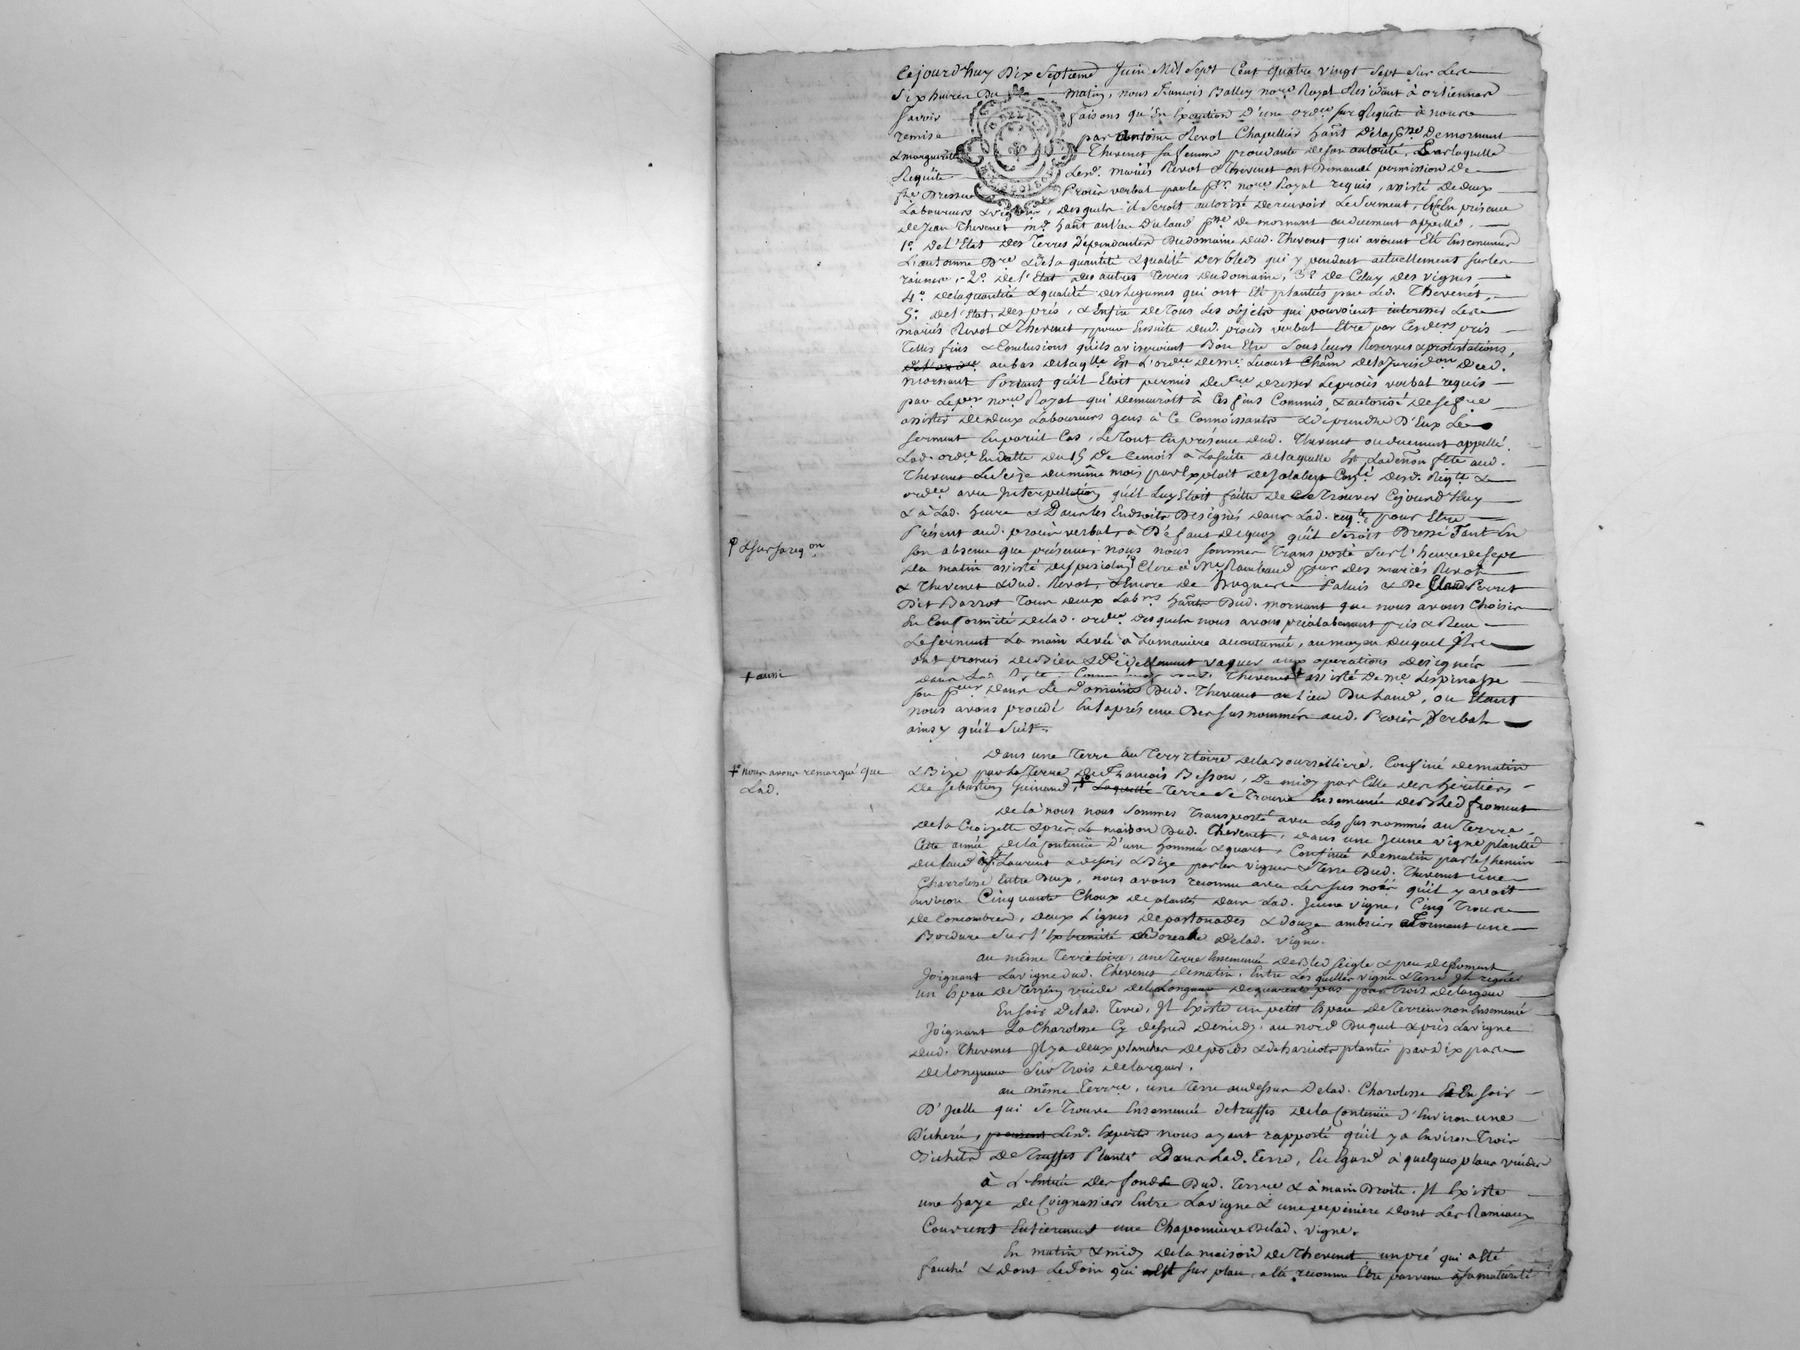 Cejourd'huy Dix Septieme Juin Mil Sept Cent quatre vingt Sept sur Les
Six heures Du matin, nous François Balley nore Royal Résidant à orlienas
Savoir faisons qu'En Execution D'une ordce sur Requête à nous
remise par Antoine Revol Chapellier hañt Delapsse Demornant
& marguerite Thevenet sa femme procedante deson autorité, Par laquelle
Requête Lesd. mariés Revol & Thevenet ont Demandé permission De
fre Dresser Procès verbal par le pr. nore Royal requis, assisté Dedeux
Laboureurs & vignerons, desquels il Seroit autorisé de recevoir Le Serment, & En présence
de Jean Thevenet md. hañt au lieu Dulaud psse de mornant ou duement appellé,
1o. De l'Etat Des Terres Dépendantes Dudomaine dud. Thevenet qui avoient Eté Ensemencées
L'automne Dre & de la quantité & qualité Des bleds qui y pendent actuellement sur les
racines, 2o. de l'Etat des autres Terres dudomaine, 3o. De Celuy des vignes
4o. dela quantité & qualité des Légumes qui ont Eté plantés par Led. Thevenet,
5o. de l'Etat des prés, & Enfin De Tous Les objets qui pouvoient interesser Les
mariés Revol & Thevenet, pour Ensuite dud. procès verbal Etre par Ces ders pris
Telles fins & Conclusions qu'ils aviseroient Bon Etre Sous leurs Reserves & protestations,
au bas delaqlle Est L'ordce de me. Lucourt Châtn delaJurisdon Dud.
mornant Portant qu'il Etoit permis de fre dresser Le procès verbal requis
par Le per nore Royal qui demeuroit à Ces fins Commis, & autorisé De se fre
assister De deux Laboureurs gens à Ce Connoissants & de prendre D'Eux Le
serment En pareil Cas, Le Tout En présence dud. Thevenet ou duement appellé.
Lad. ordce En datte du 15 De Cemois à La suite de laquelle Est La denon fte aud.
Thevenet Le Seize du même mois par Exploit de desd. Reqte &
ordce avec Interpellation qu'il Luy Etoit faitte De se Trouver Cejourd'huy
& à Lad. heure & Dans les Endroits Designés dans Lad. reqte pour Etre
Présent aud. procès verbal, à Défaut De quoy qu'il Seroit Dressé Tant En
℗ & sur sa reqon
son absence que présence, nous nous sommes Transporté sur L'heure de sept
du matin assisté de Clerc à Me Rambaud pur des mariés Revol
& Thevenet & dud. Revol, & Encore de hugues Palais & De Claud Perret
Dit Barrot Tous deux Labrs hañts Dud. mornant que nous avons Choisis
En Conformité delad. ordce, desquels nous avons préalablement pris & Reçu
Le serment La main Levée à La maniere accoutumée, au moyen duquel Ils
ont promis de bien & fidellement vaquer aux operations désignées
+ aussi
dans Lad. rqte. Comme aussi aud. Thevenet + assisté De me. Lespinasse
son pcur Dans Le Domaine Dud. Thevenet au lieu Du Laud, ou Etant
nous avons procedé En la présence Des susnommés aud. Procès Verbal
ainsy qu'il Suit.
Dans une Terre au Territoire dela Boursilliere, Confiné de matin
+o nous avons remarqué que
& Bize par la Terre de François Besson, De midy par Celle des héritiers
Lad.
De Sébastien Guinand, +o Laquelle Terre se Trouve Ensemencée de Bled froment
De Là nous nous Sommes Transporté avec Les susnommés au Terrre.
dela Croizette & près La maison Dud. Thevenet, dans une Jeune vigne plantée
Cette année dela Contenue D'une hommée & quart, Confinée de matin par le Chemin
du laud à St Laurent & de soir & Bize par les vignes & Terre Dud. Thevenet une
Charroliere Entre Deux, nous avons reconnu avec Les sus nés qu'il y avoit
Environ Cinquante Choux de plantés dans Lad. Jeune vigne, Cinq Trous
de Concombres, deux Lignes de pastonades & douze ambriers Formant une
Bordure sur l'Extremité delad. vigne.
au même Territoire, une Terre Ensemencée de Bled seigle & peu de froment
Joignant La vigne dud. Thevenet de matin, Entre Lesquelles vigne & Terre Il regne
un Espace de Terrein vuide de la longueur de quarante pas sur Trois de largeur
En soir Delad. Terre, Il Existe un petit Espace de Terrein non Ensemencé
Joignant La Charoliere Cy dessus de midy, au nord Duquel & près La vigne
dud. Thevenet Il y a deux planches de poids & de haricots plantés par dix pas
de longueur Sur Trois de largeur.
au même Terrre, une Terre au dessus Delad. Charoliere & En soir
D'Icelle qui se Trouve Ensemencée de truffes dela Contenüe d'Environ une
Bicherée, Lesd. Experts nous ayant rapporté qu'il y a Environ Trois
Bichets De Truffes Plantés Dans Lad. Terre, En Egard à quelques places vuides
à L'Entrée Des fonds Dud. Terrre & à main Droite, Il Existe
une haye de Coignassiers Entre La vigne & une pepiniere Dont Les Rameaux
Couvrent Entierement une Chaponniere Delad. vigne.
En matin & midy dela maison de Thevenet un pré qui a Eté
fauché & dont Le foin qui Est sur place, a Eté reconnu Etre parvenu à sa maturité